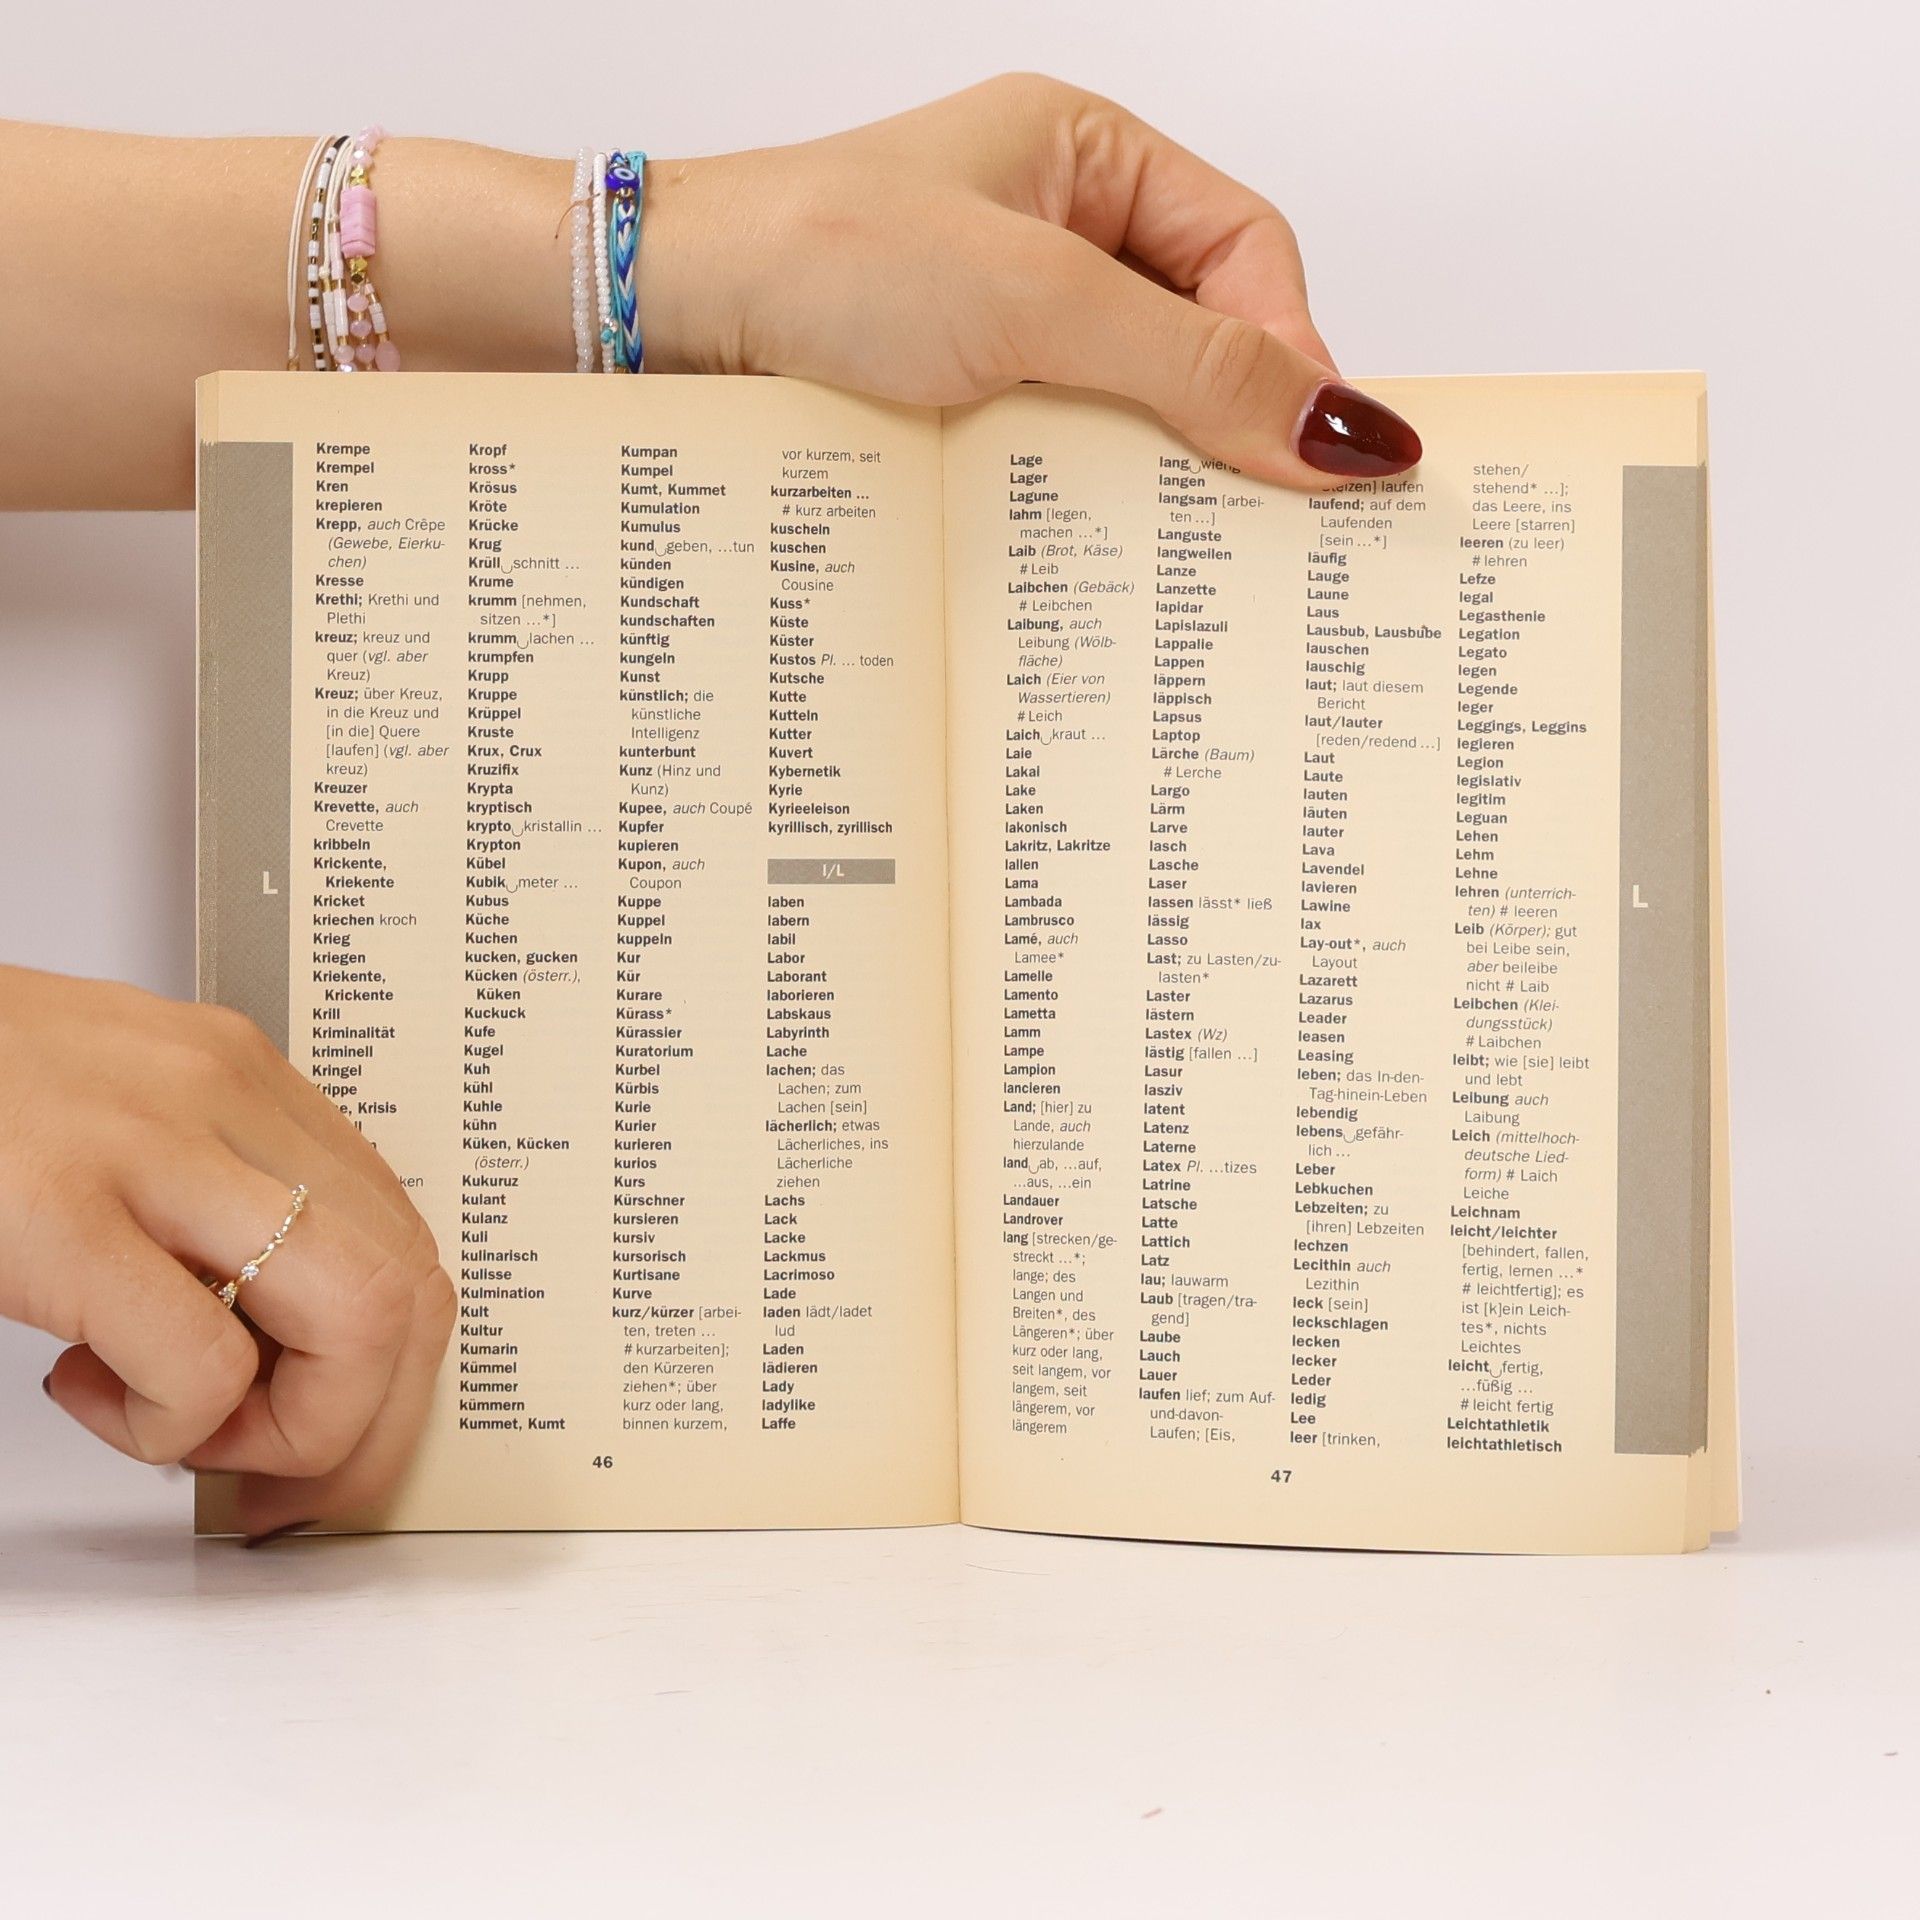 L
Krempe
Krempel
Kren
krepieren
Krepp, auch Crêpe
(Gewebe, Eierku-
chen)
Kresse
Krethi; Krethi und
Plethi
kreuz; kreuz und
quer (vgl. aber
Kreuz)
Kreuz; über Kreuz,
in die Kreuz und
[in die] Quere
[laufen] (vgl. aber
kreuz)
Kreuzer
Krevette, auch
Crevette
kribbeln
Krickente,
Kriekente
Kricket
kriechen kroch
Krieg
kriegen
Kriekente,
Krickente
Krill
Kriminalität
kriminell
Kringel
Krisis
Kropf
kross*
Krösus
Kröte
Krücke
Krug
Krüll‿schnitt ...
Krume
krumm [nehmen,
sitzen ...*]
krumm‿lachen ...
krumpfen
Krupp
Kruppe
Krüppel
Kruste
Krux, Crux
Kruzifix
Krypta
kryptisch
krypto‿kristallin ...
Krypton
Kübel
Kubik‿meter ...
Kubus
Küche
Kuchen
kucken, gucken
Kücken (österr.),
Küken
Kuckuck
Kufe
Kugel
Kuh
kühl
Kuhle
kühn
Küken, Kücken
(österr.)
Kukuruz
kulant
Kulanz
Kuli
kulinarisch
Kulisse
Kulmination
Kult
Kultur
Kumarin
Kümmel
Kummer
kümmern
Kummet, Kumt
Kumpan
Kumpel
Kumt, Kummet
Kumulation
Kumulus
kund‿geben, ...tun
künden
kündigen
Kundschaft
kundschaften
künftig
kungeln
Kunst
künstlich; die
künstliche
Intelligenz
kunterbunt
Kunz (Hinz und
Kunz)
Kupee, auch Coupé
Kupfer
kupieren
Kupon, auch
Coupon
Kuppe
Kuppel
kuppeln
Kur
Kür
Kurare
Kürass*
Kürassier
Kuratorium
Kurbel
Kürbis
Kurie
Kurier
kurieren
kurios
Kurs
Kürschner
kursieren
kursiv
kursorisch
Kurtisane
Kurve
kurz/kürzer [arbei-
ten, treten ...
# kurzarbeiten];
den Kürzeren
ziehen*; über
kurz oder lang,
binnen kurzem,
vor kurzem, seit
kurzem
kurzarbeiten ...
# kurz arbeiten
kuscheln
kuschen
Kusine, auch
Cousine
Kuss*
Küste
Küster
Kustos Pl. ... toden
Kutsche
Kutte
Kutteln
Kutter
Kuvert
Kybernetik
Kyrie
Kyrieeleison
kyrillisch, zyrillisch
l/L
laben
labern
labil
Labor
Laborant
laborieren
Labskaus
Labyrinth
Lache
lachen; das
Lachen; zum
Lachen [sein]
lächerlich; etwas
Lächerliches, ins
Lächerliche
ziehen
Lachs
Lack
Lacke
Lackmus
Lacrimoso
Lade
laden lädt/ladet
lud
Laden
lädieren
Lady
ladylike
Laffe
46
Lage
Lager
Lagune
lahm [legen,
machen ...*]
Laib (Brot, Käse)
# Leib
Laibchen (Gebäck)
# Leibchen
Laibung, auch
Leibung (Wölb-
fläche)
Laich (Eier von
Wassertieren)
# Leich
Laich‿kraut ...
Laie
Lakai
Lake
Laken
lakonisch
Lakritz, Lakritze
lallen
Lama
Lambada
Lambrusco
Lamé, auch
Lamee*
Lamelle
Lamento
Lametta
Lamm
Lampe
Lampion
lancieren
Land; [hier] zu
Lande, auch
hierzulande
land‿ab, ...auf,
...aus, ...ein
Landauer
Landrover
lang [strecken/ge-
streckt ...*;
lange; des
Langen und
Breiten*, des
Längeren*; über
kurz oder lang,
seit langem, vor
langem, seit
längerem, vor
längerem
lang‿wierig
langen
langsam [arbei-
ten ...]
Languste
langweilen
Lanze
Lanzette
lapidar
Lapislazuli
Lappalie
Lappen
läppern
läppisch
Lapsus
Laptop
Lärche (Baum)
# Lerche
Largo
Lärm
Larve
lasch
Lasche
Laser
lassen lässt* ließ
lässig
Lasso
Last; zu Lasten/zu-
lasten*
Laster
lästern
Lastex (Wz)
lästig [fallen ...]
Lasur
lasziv
latent
Latenz
Laterne
Latex Pl. ...tizes
Latrine
Latsche
Latte
Lattich
Latz
lau; lauwarm
Laub [tragen/tra-
gend]
Laube
Lauch
Lauer
laufen lief; zum Auf-
und-davon-
Laufen; [Eis,
laufen
laufend; auf dem
Laufenden
[sein ...*]
läufig
Lauge
Laune
Laus
Lausbub, Lausbube
lauschen
lauschig
laut; laut diesem
Bericht
laut/lauter
[reden/redend ...]
Laut
Laute
lauten
läuten
lauter
Lava
Lavendel
lavieren
Lawine
lax
Lay-out*, auch
Layout
Lazarett
Lazarus
Leader
leasen
Leasing
leben; das In-den-
Tag-hinein-Leben
lebendig
lebens‿gefähr-
lich ...
Leber
Lebkuchen
Lebzeiten; zu
[ihren] Lebzeiten
lechzen
Lecithin auch
Lezithin
leck [sein]
leckschlagen
lecken
lecker
Leder
ledig
Lee
leer [trinken,
stehen/
stehend* ...];
das Leere, ins
Leere [starren]
leeren (zu leer)
# lehren
Lefze
legal
Legasthenie
Legation
Legato
legen
Legende
leger
Leggings, Leggins
legieren
Legion
legislativ
legitim
Leguan
Lehen
Lehm
Lehne
lehren (unterrich-
ten) # leeren
Leib (Körper); gut
bei Leibe sein,
aber beileibe
nicht # Laib
Leibchen (Klei-
dungsstück)
# Laibchen
leibt; wie [sie] leibt
und lebt
Leibung auch
Laibung
Leich (mittelhoch-
deutsche Lied-
form) # Laich
Leiche
Leichnam
leicht/leichter
[behindert, fallen,
fertig, lernen ...*
# leichtfertig]; es
ist [k]ein Leich-
tes*, nichts
Leichtes
leicht‿fertig,
...füßig ...
# leicht fertig
Leichtathletik
leichtathletisch
47
L